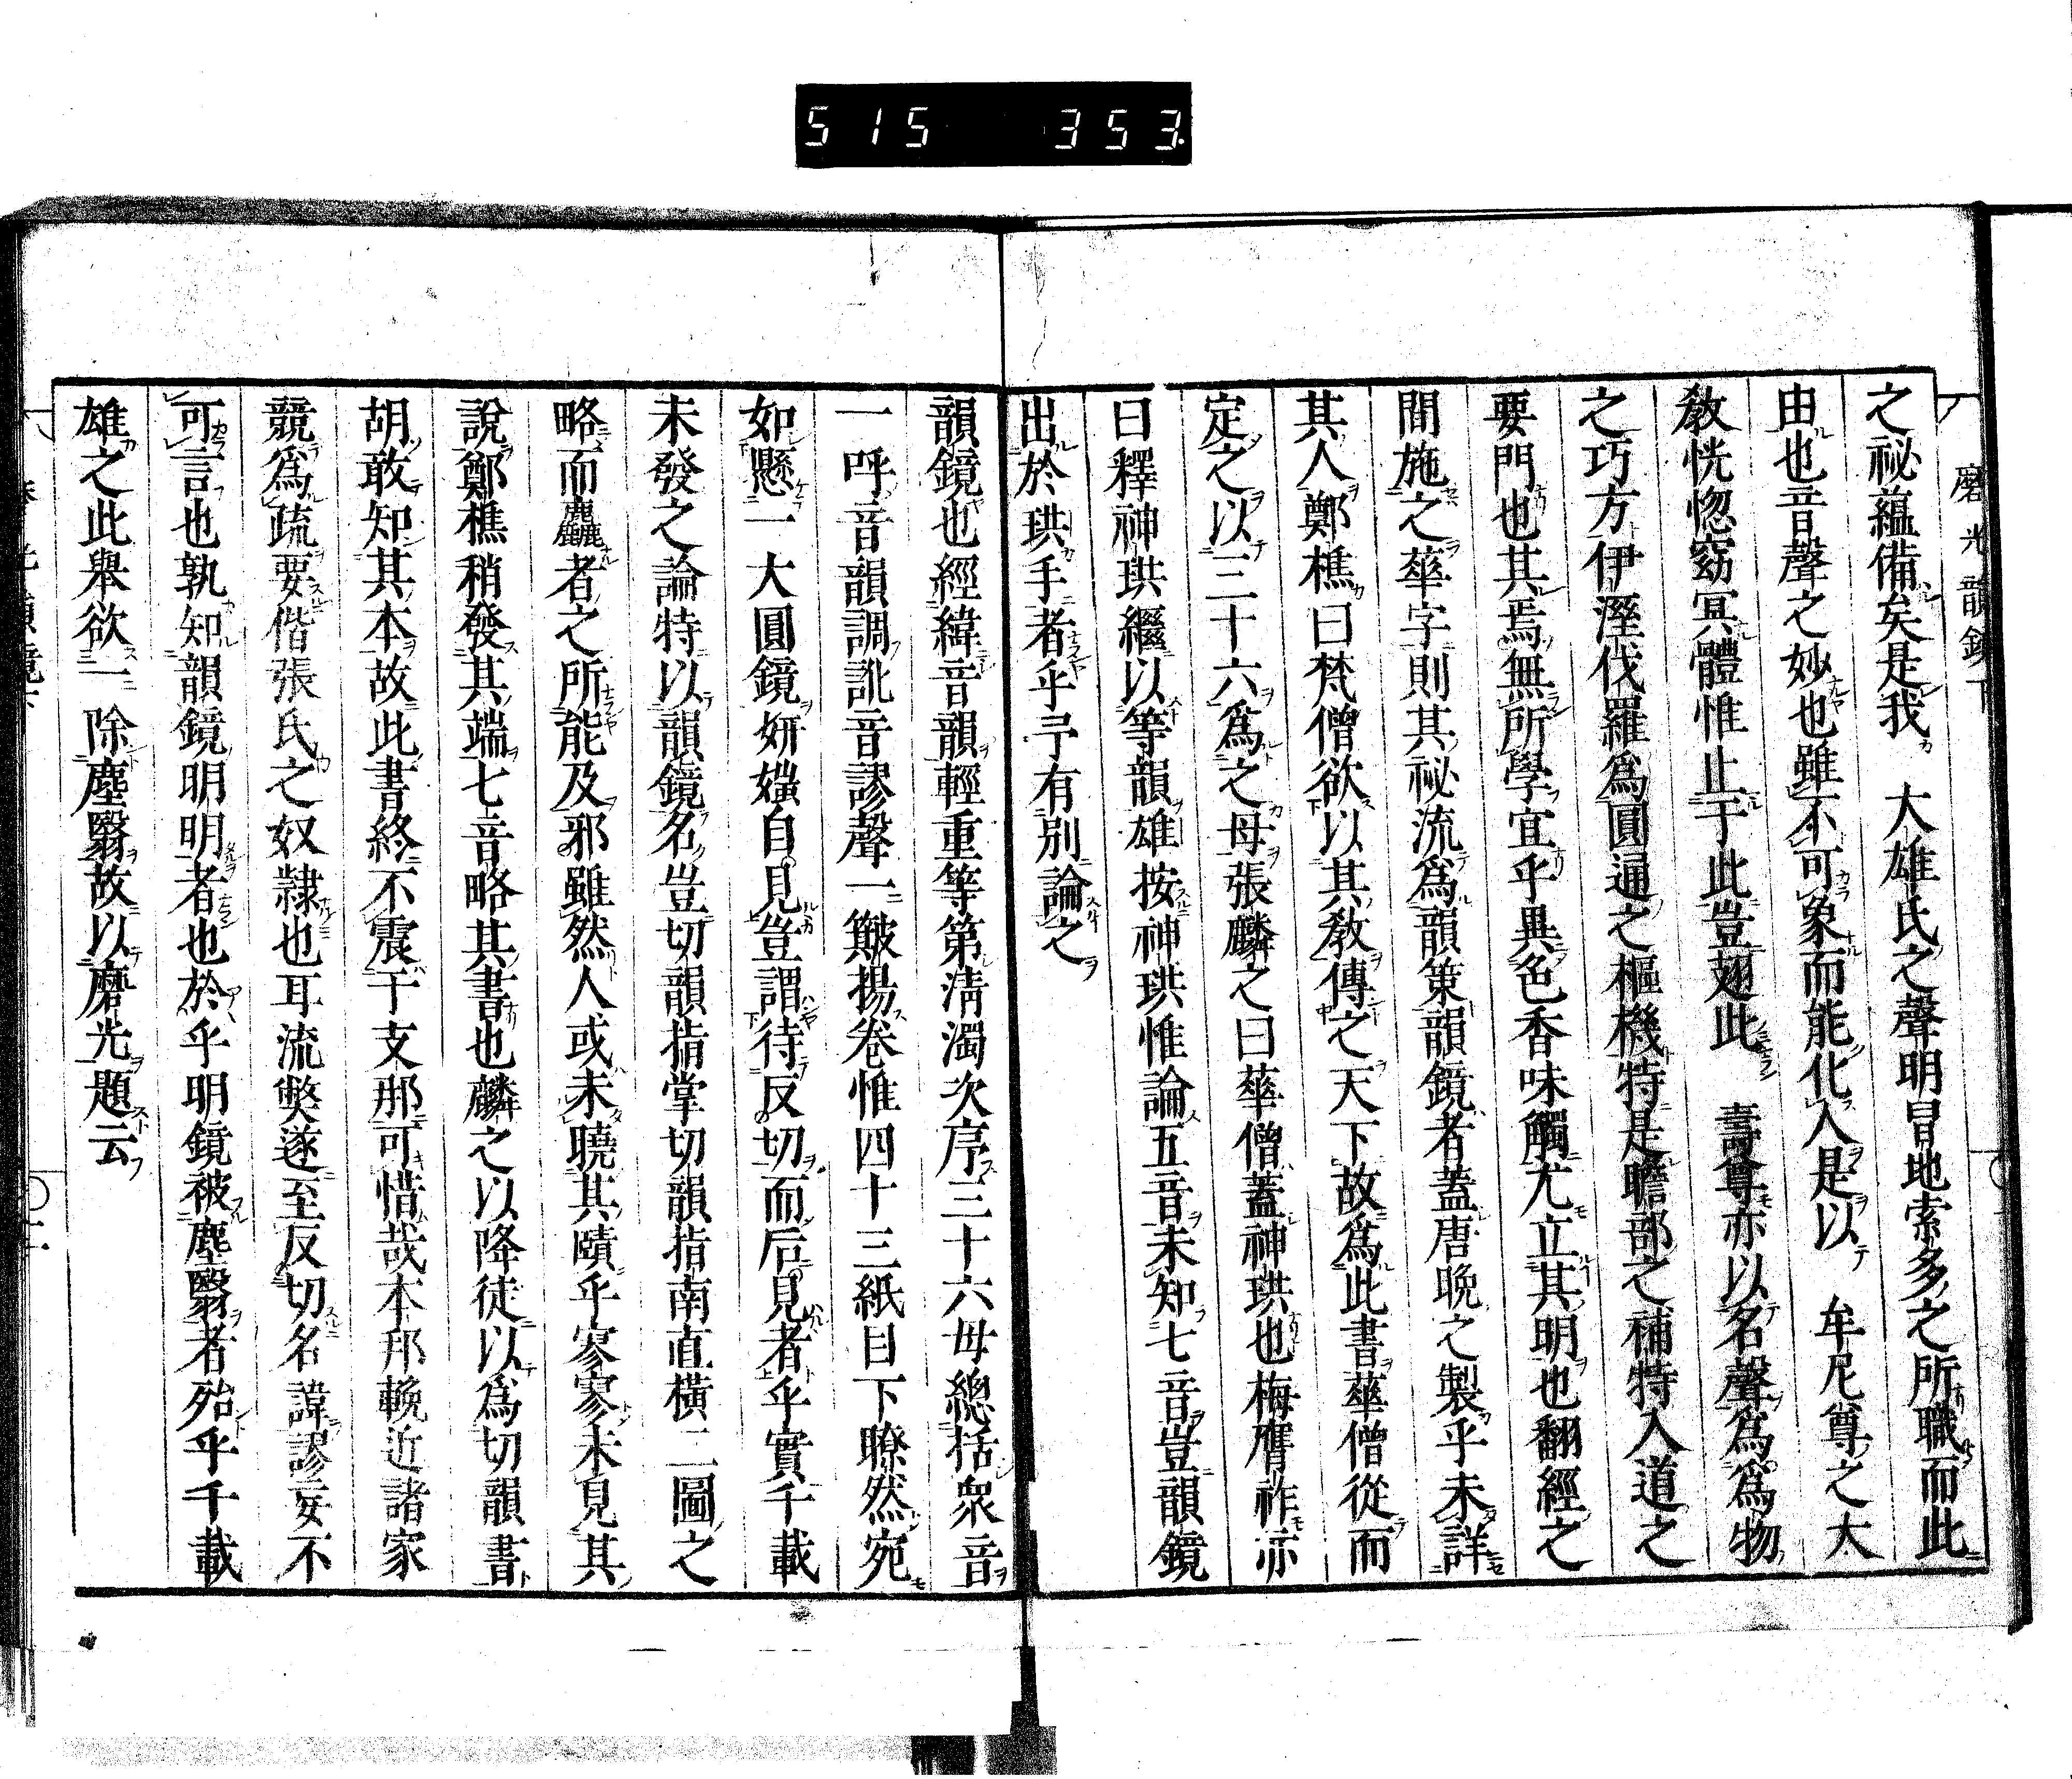 515 353.
磨光韻鏡下
之祕蘊備矣是我 大雄氏之聲明冐地索多之所職而此
由也音聲之妙也雖不可象而能化人是以 牟尼尊之大
敎恍惚窈冥體惟止于此豈翅此 壽尊亦以名聲爲爲物
之巧方伊溼伐羅爲圓通之樞機特是瞻部之補特入道之
要門也其焉無所學宜乎異色香味觸尤立其明也翻經之
間施之華字則其祕流爲韻策韻鏡者蓋唐晚之製乎未詳
其人鄭樵曰梵僧欲以其敎傳之天下故爲此書華僧從而
定之以三十六爲之母張麟之曰華僧蓋神珙也梅膺祚亦
曰釋神珙繼以等韻雄按神珙惟論五音未知七音豈韻鏡
出於珙手者乎予有別論之
韻鏡也經緯音韻輕重等第淸濁次序三十六母總括衆音
一呼音韻調訛音謬聲一皾揚卷惟四十三紙目下瞭然宛
如懸一大圓鏡妍媸自見豈謂待反切而后見者乎實千載
未發之論特以韻鏡名豈切韻指掌切韻指南直橫二圖之
略而麤者之所能及邪雖然人或未曉其賾乎寥寥未見其
說鄭樵稍發其端七音略其書也麟之以降徒以爲切韻書
胡敢知其本故此書終不震于支那可惜哉本邦輓近諸家
競爲疏要偕張氏之奴隸也耳流獘遂至反切名諱謬妄不
可言也孰知韻鏡明明者也於乎明鏡被塵翳者殆乎千載
雄之此擧欲一除塵翳故以磨光題云